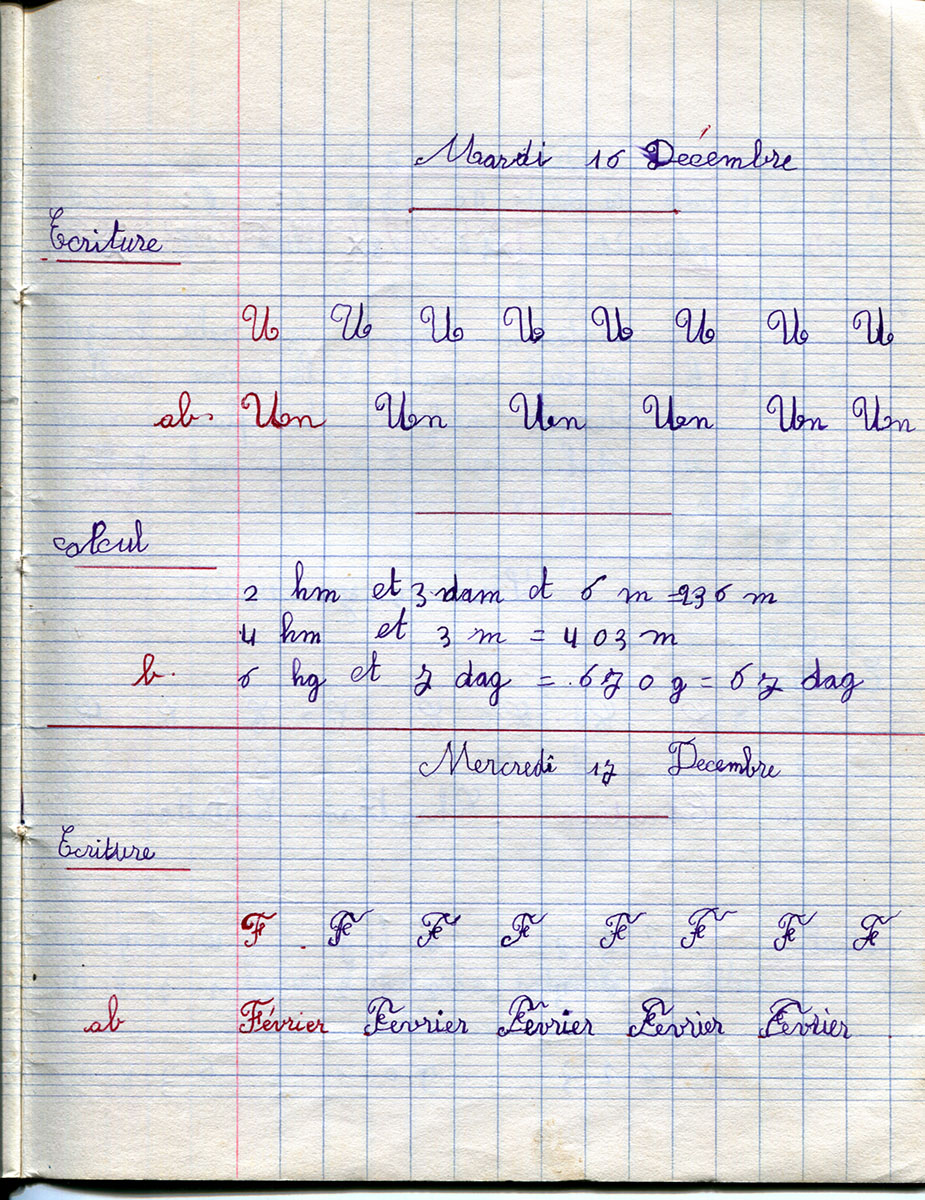 Mardi 16 Décembre
Ecriture
U U U U U U U U
ab. Un Un Un Un Un Un
calcul
2 hm et 3 dam et 6 m = 236 m
4 hm et 3 m = 403 m
b. 6 hg et 7 dag = 670 g = 67 dag
Mercredi 17 Decembre
Ecriture
F F F F F F F F
ab Février Fevrier Fevrier Fevrier Fevrier